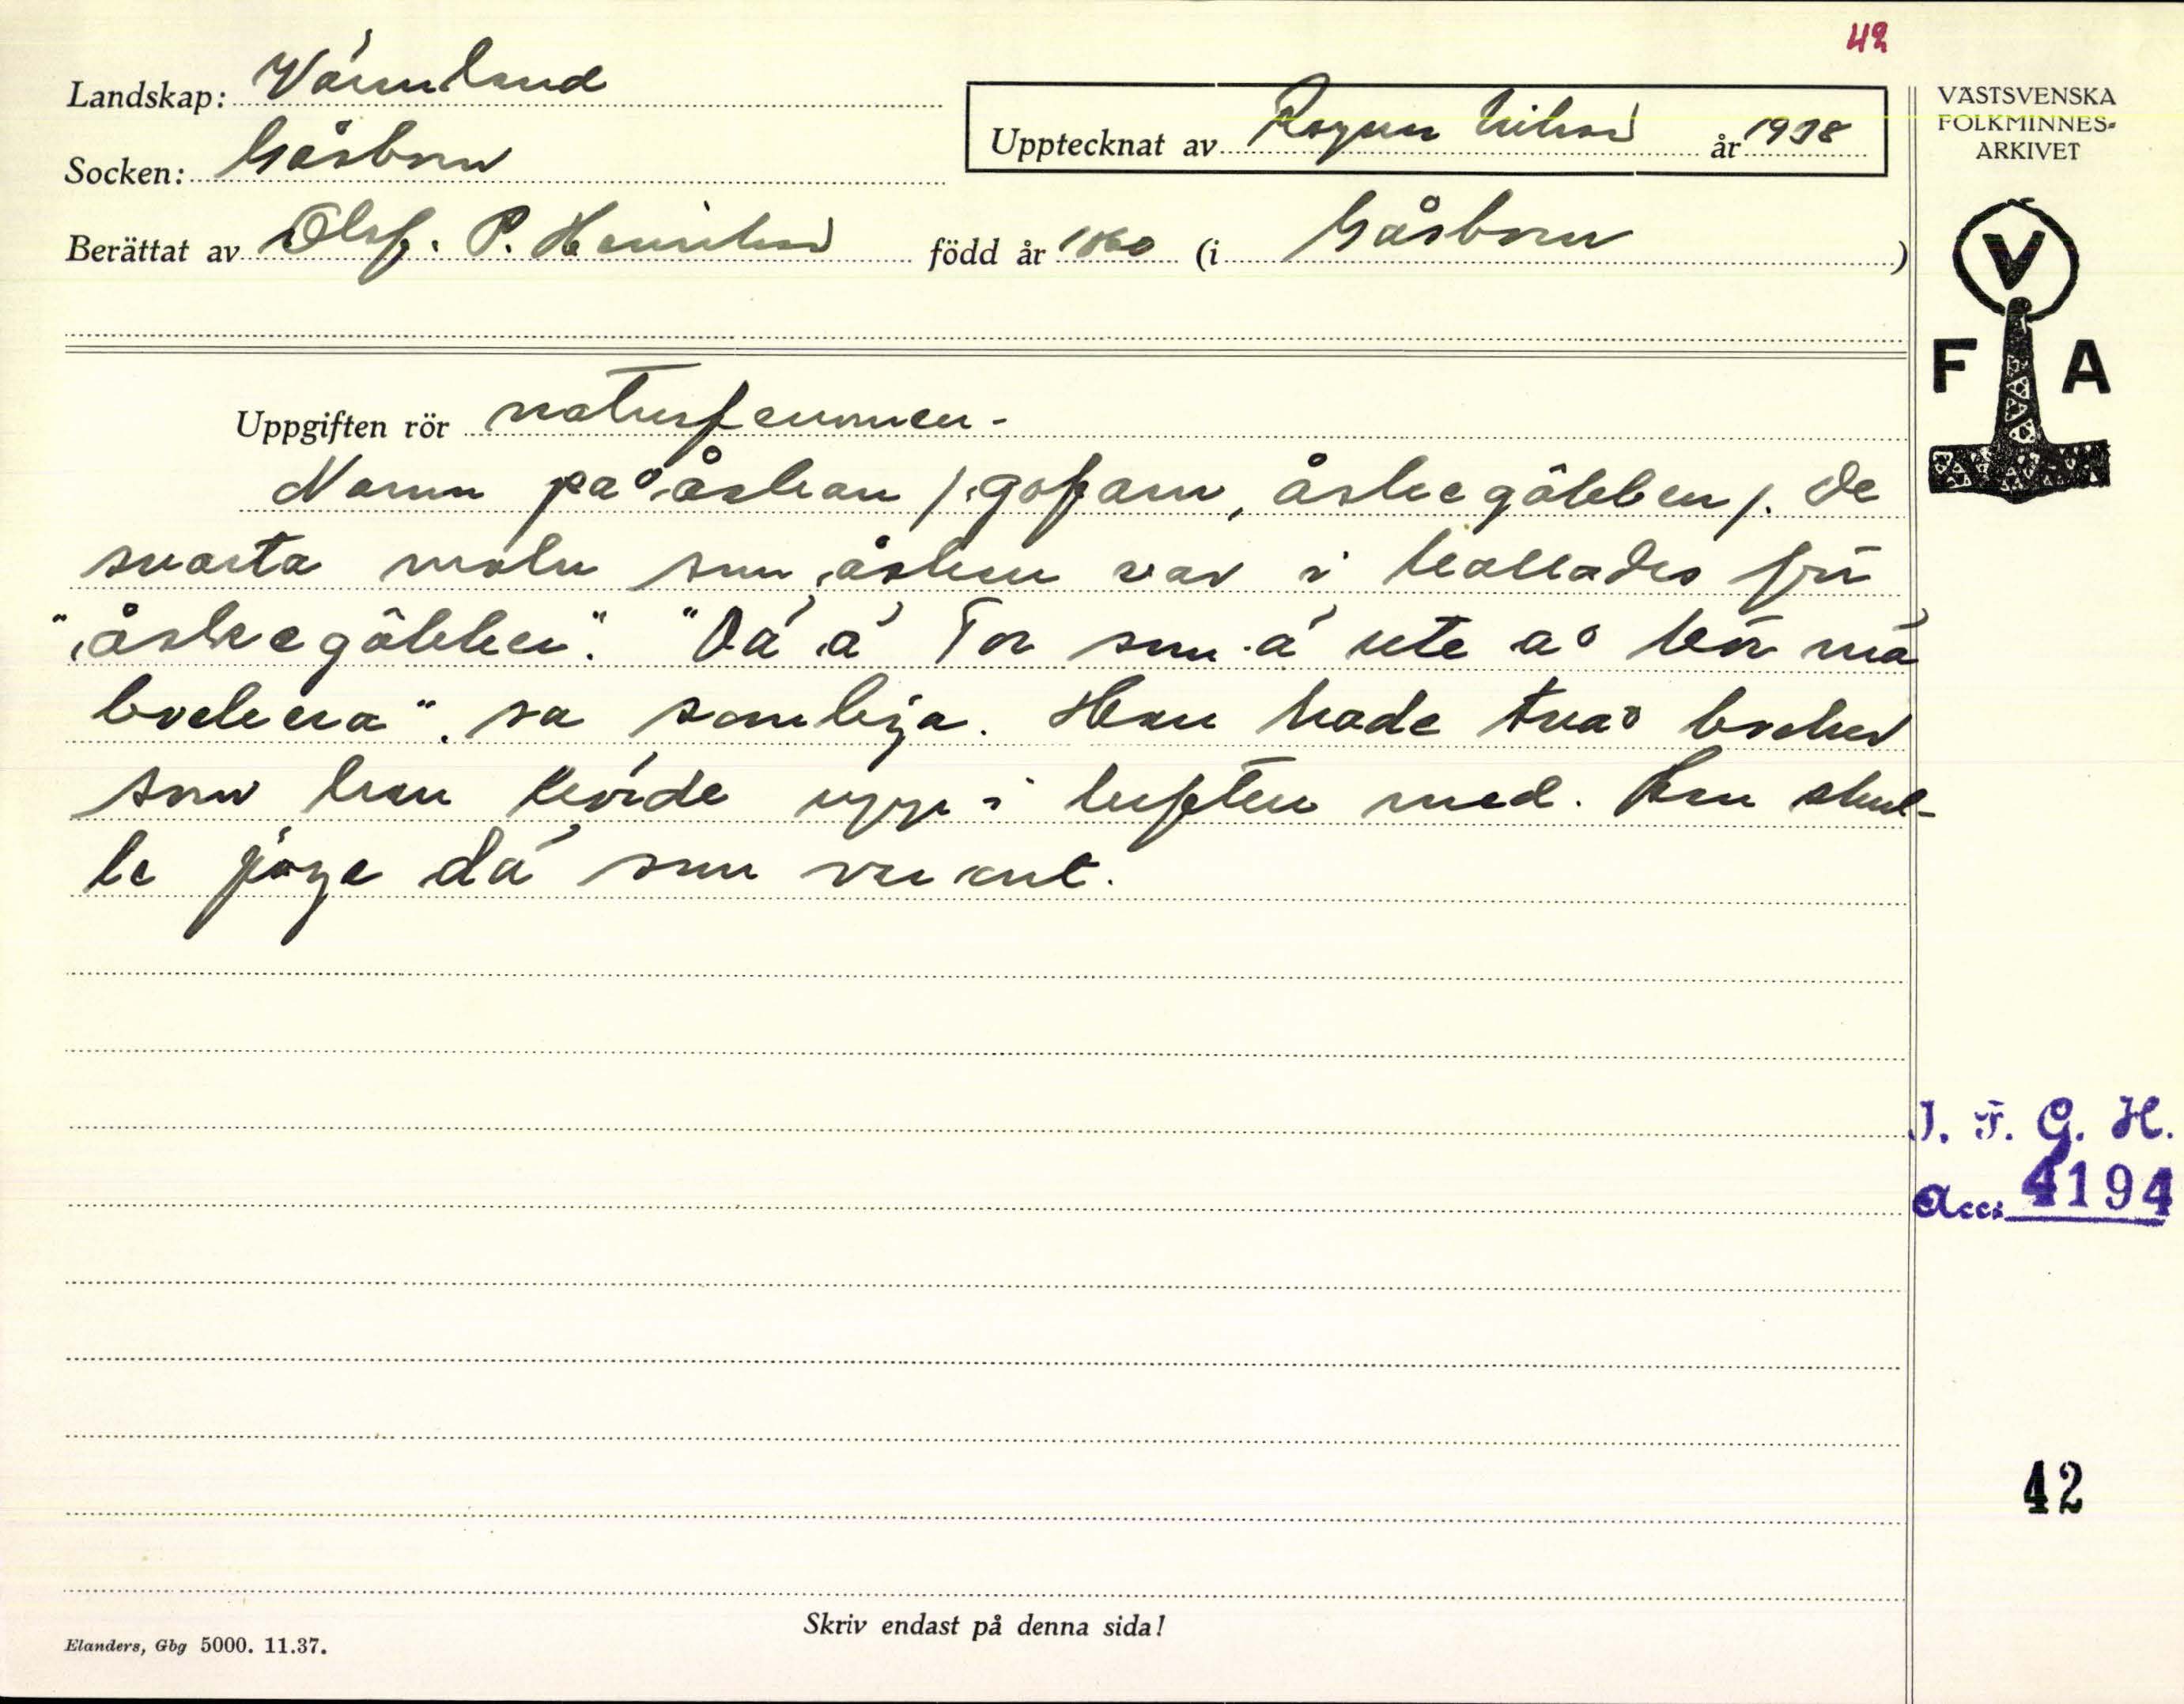 42
Landskap: Värmland
Socken: Gåsborn
Upptecknat av Ragnar Nilsson år 1938
Berättat av Olof. P. Henriksson född år 1860 (i Gåsborn)
VÄSTSVENSKA
FOLKMINNES=
ARKIVET
V
F A
Uppgiften rör naturfenomen.
Namn på åskan /:gofarn, åskegôbben/. De
svarta moln som åsken var i kallades för
"åskegôbber". "Dä ä Tor som ä ute å kör mä
bockera". sa somliga. Han hade två bocker
som han körde upp i luften med. Han skul-
le jaga dä som va ont.
I. F. G. H.
Acc: 4194
42
Skriv endast på denna sida!
Elanders, Gbg 5000. 11.37.